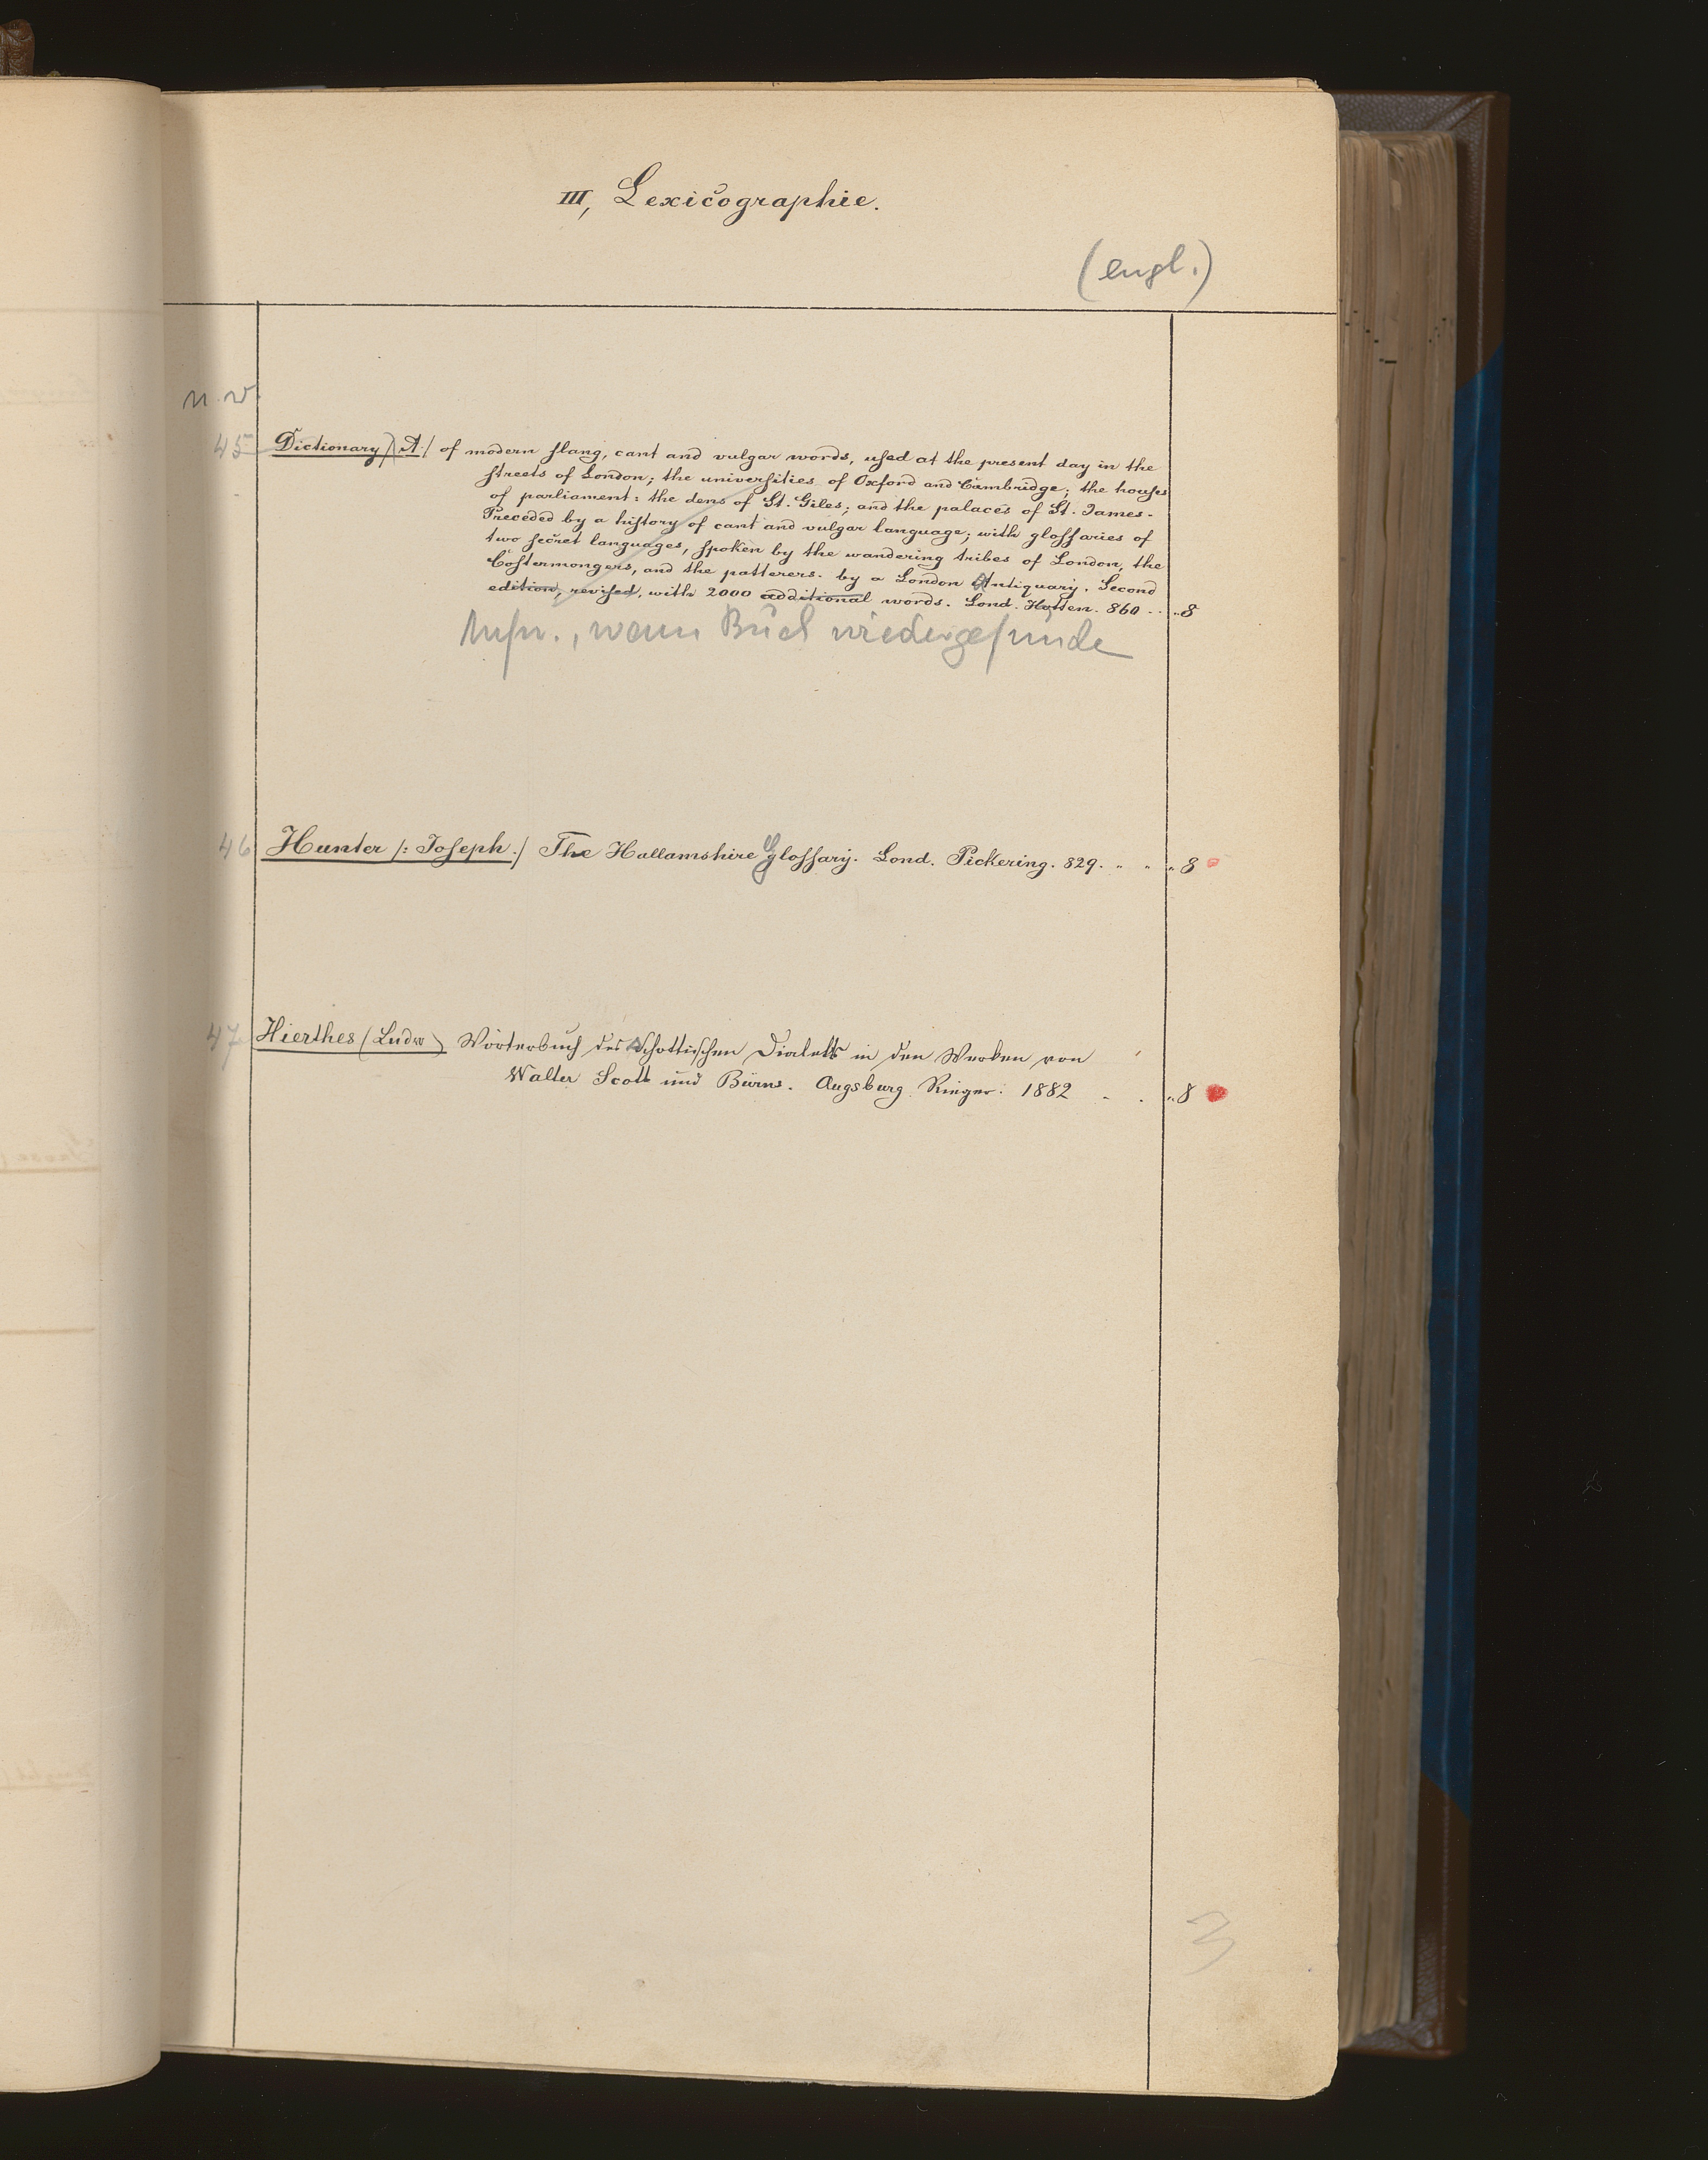 III, Lexicographie.
(engl.)
n. v.
45 Dictionary /A/ of modern slang, cant and vulgar words, used at the present day in the
streets of London; the universities of Oxford and Cambridge; the houses
of parliament: the dens of St. Giles; and the palaces of St. James.
Preceded by a history of cant and vulgar language; with glossaries of
two secret languages, spoken by the wandering tribes of London, the
Costermongers, and the patterers. by a London Antiquary. Second
edition, revised, with 2000 additional words. Lond. Hotten. 860 . . „8
wenn Buch wiedergefunde
46 Hunter /: Joseph./ The Hallamshire Glossary. Lond. Pickering. 829. „ „ „8
47 Hierthes (Ludw) Wörterbuch des Schottischen Dialekts in den Werken von
Walter Scott und Burns. Augsburg Rieger. 1882 . . „8
3